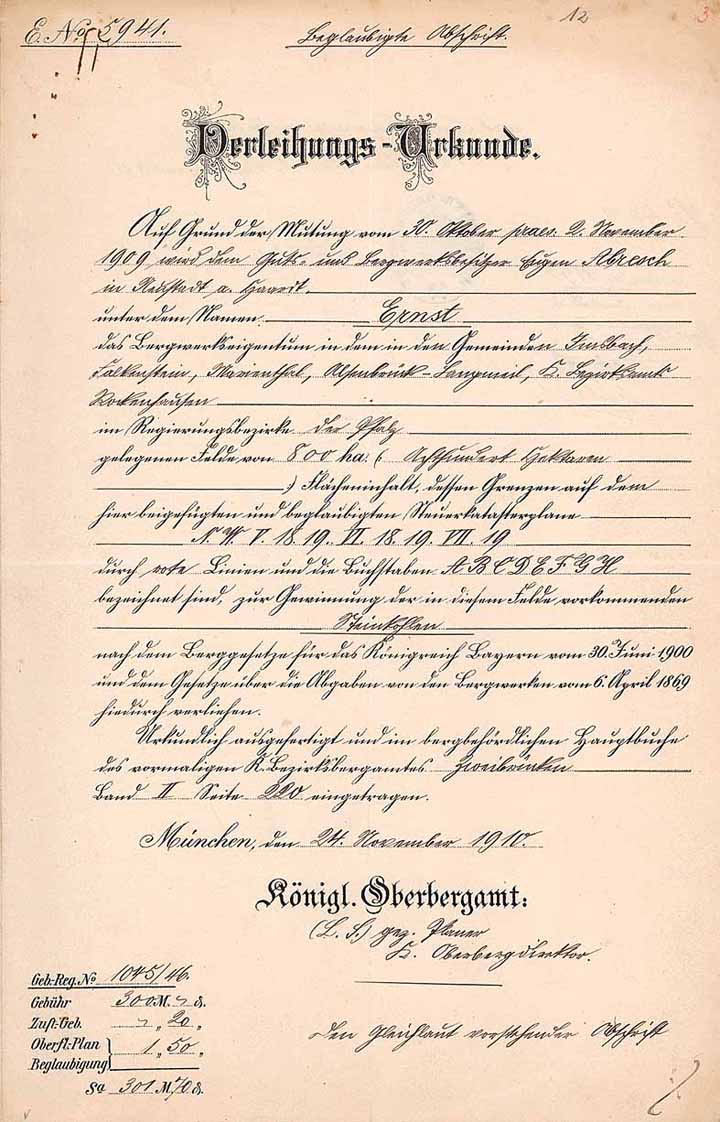 E. No 5941.
Beglaubigte Abschrift.
12
3
Verleihungs-Urkunde.
Auf Grund der Mutung vom 30. Oktober praes. 2. November
1909 wird dem Guts- und Bergwerksbesitzer Eugen Abresch
in Neustadt a. Haardt.
unter dem Namen Ernst
das Bergwerkseigentum in dem in den Gemeinden Imsbach,
Falkenstein, Marienthal, Alsenbrück-Langmeil, K. Bezirksamts
Rockenhausen
im Regierungsbezirke der Pfalz
gelegenen Felde von 800 ha. ( Achthundert Hektaren
) Flächeninhalt, dessen Grenzen auf dem
hier beigefügten und beglaubigten Steuerkatasterplane
N. W. V. 18. 19. VI. 18. 19. VII. 19
durch rote Linien und die Buchstaben A B C D E F G H
bezeichnet sind, zur Gewinnung der in diesem Felde vorkommenden
Steinkohlen
nach dem Berggesetze für das Königreich Bayern vom 30. Juni 1900
und dem Gesetze über die Abgaben von den Bergwerken vom 6. April 1869
hiedurch verliehen.
Urkundlich ausgefertigt und im bergbehördlichen Hauptbuche
des vormaligen K. Bezirksbergamtes Zweibrücken
Band II Seite 220 eingetragen.
München, den 24. November 1910.
Königl. Oberbergamt:
(L. S.) gez. Planer
K. Oberbergdirektor.
Geb.-Reg. No 1045/46.
Gebühr 300 M. - ₰.
Zust.-Geb. - „ 20 „
Oberfl.-Plan
Beglaubigung } 1 „ 50 „
Sa 301 M. 70 ₰.
Den Gleichlaut vorstehender Abschrift